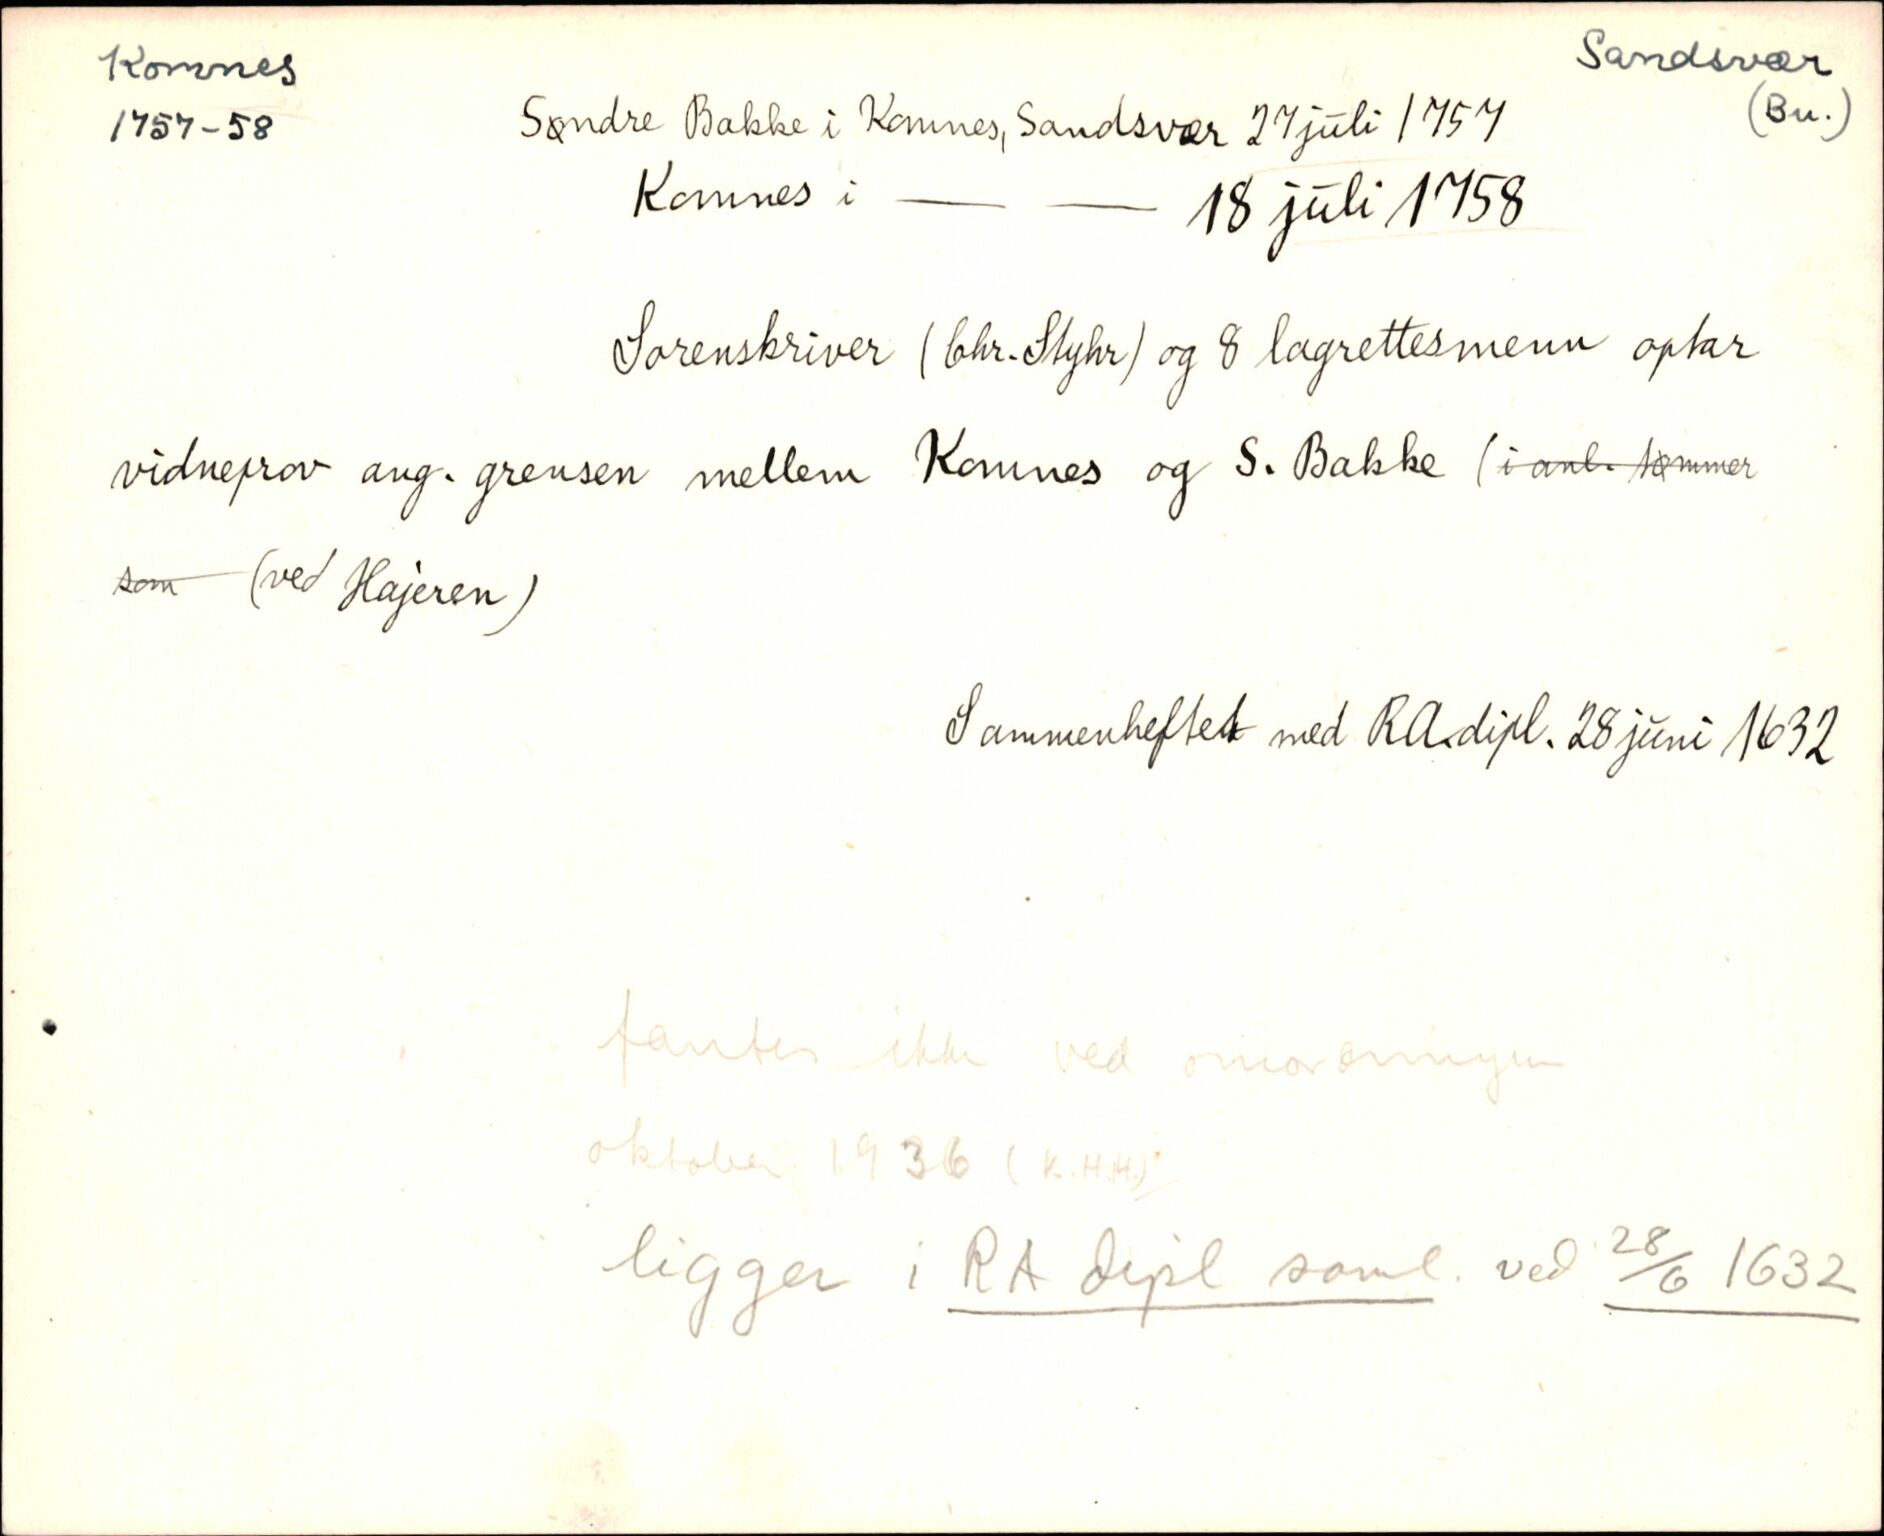 Komnes
1757-58
Sandsvær
(Bu.)
Søndre Bakke i Komnes, Sandsvær 27 juli 1757
Komnes i — — 18 juli 1758
Sorenskriver (Chr. Styhr) og 8 lagrettesmenn optar
vidneprov ang. grensen mellem Komnes og S. Bakke (i anl. tømmer
som (ved Hajeren)
Sammenheftet med RA.dipl. 28 juni 1632
fantes ikke ved omordningen
oktober 1936 (K.H.H.)
ligger i RA dipl saml. ved 28/6 1632